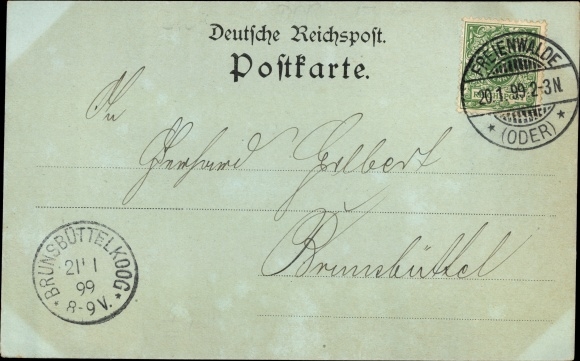 Deutsche Reichspost.
Postkarte.
FREIENWALDE
20.1.99.2-3N.
* (ODER) *
An
Gerhard Gilbert
Brunsbüttel
* BRUNSBÜTTELKOOG *
21 1
99
8-9 V.